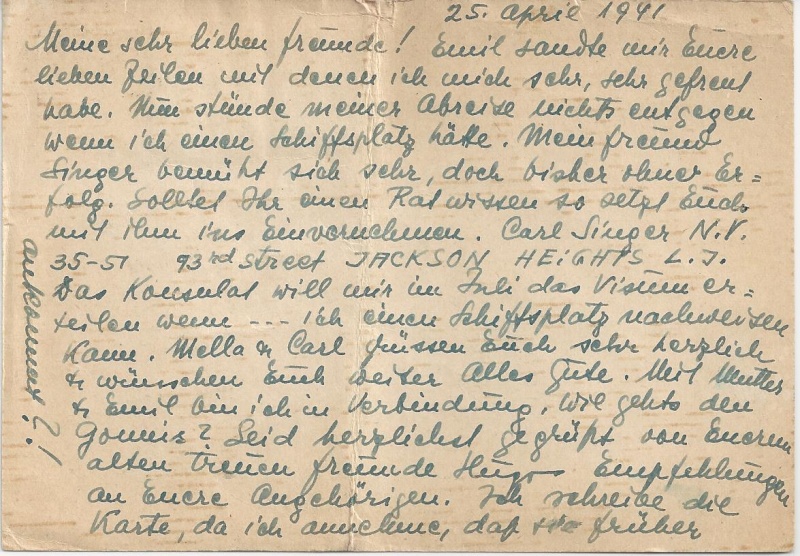 25. April 1941
Meine sehr lieben Freunde! Emil sandte mir Euere
lieben Zeilen mit denen ich mich sehr, sehr gefreut
habe. Nun stünde meiner Abreise nichts entgegen
wenn ich einen Schiffsplatz hätte. Mein Freund
Singer bemüht sich sehr, doch bisher ohner Er=
folg. Solltet Ihr einen Rat wissen so setzt Euch
mit ihm ins Einvernehmen. Carl Singer N.Y.
35-51 93rd Street JACKSON HEIGHTS L.I.
Das Konsulat will mir im Juli das Visum er=
teilen wenn --- ich einen Schiffsplatz nachweisen
kann. Mella & Carl grüssen Euch sehr herzlich
& wünschen Euch weiter Alles Gute. Mit Mutter
& Emil bin ich in Verbindung, wie gehts den
Seid herzlichst gegrüßt von Eurem
alten treuen Freunde Hugo Empfehlungen
an Euere Angehörigen. Ich schreibe die
Karte, da ich annehme, daß sie früher
ankommt?!